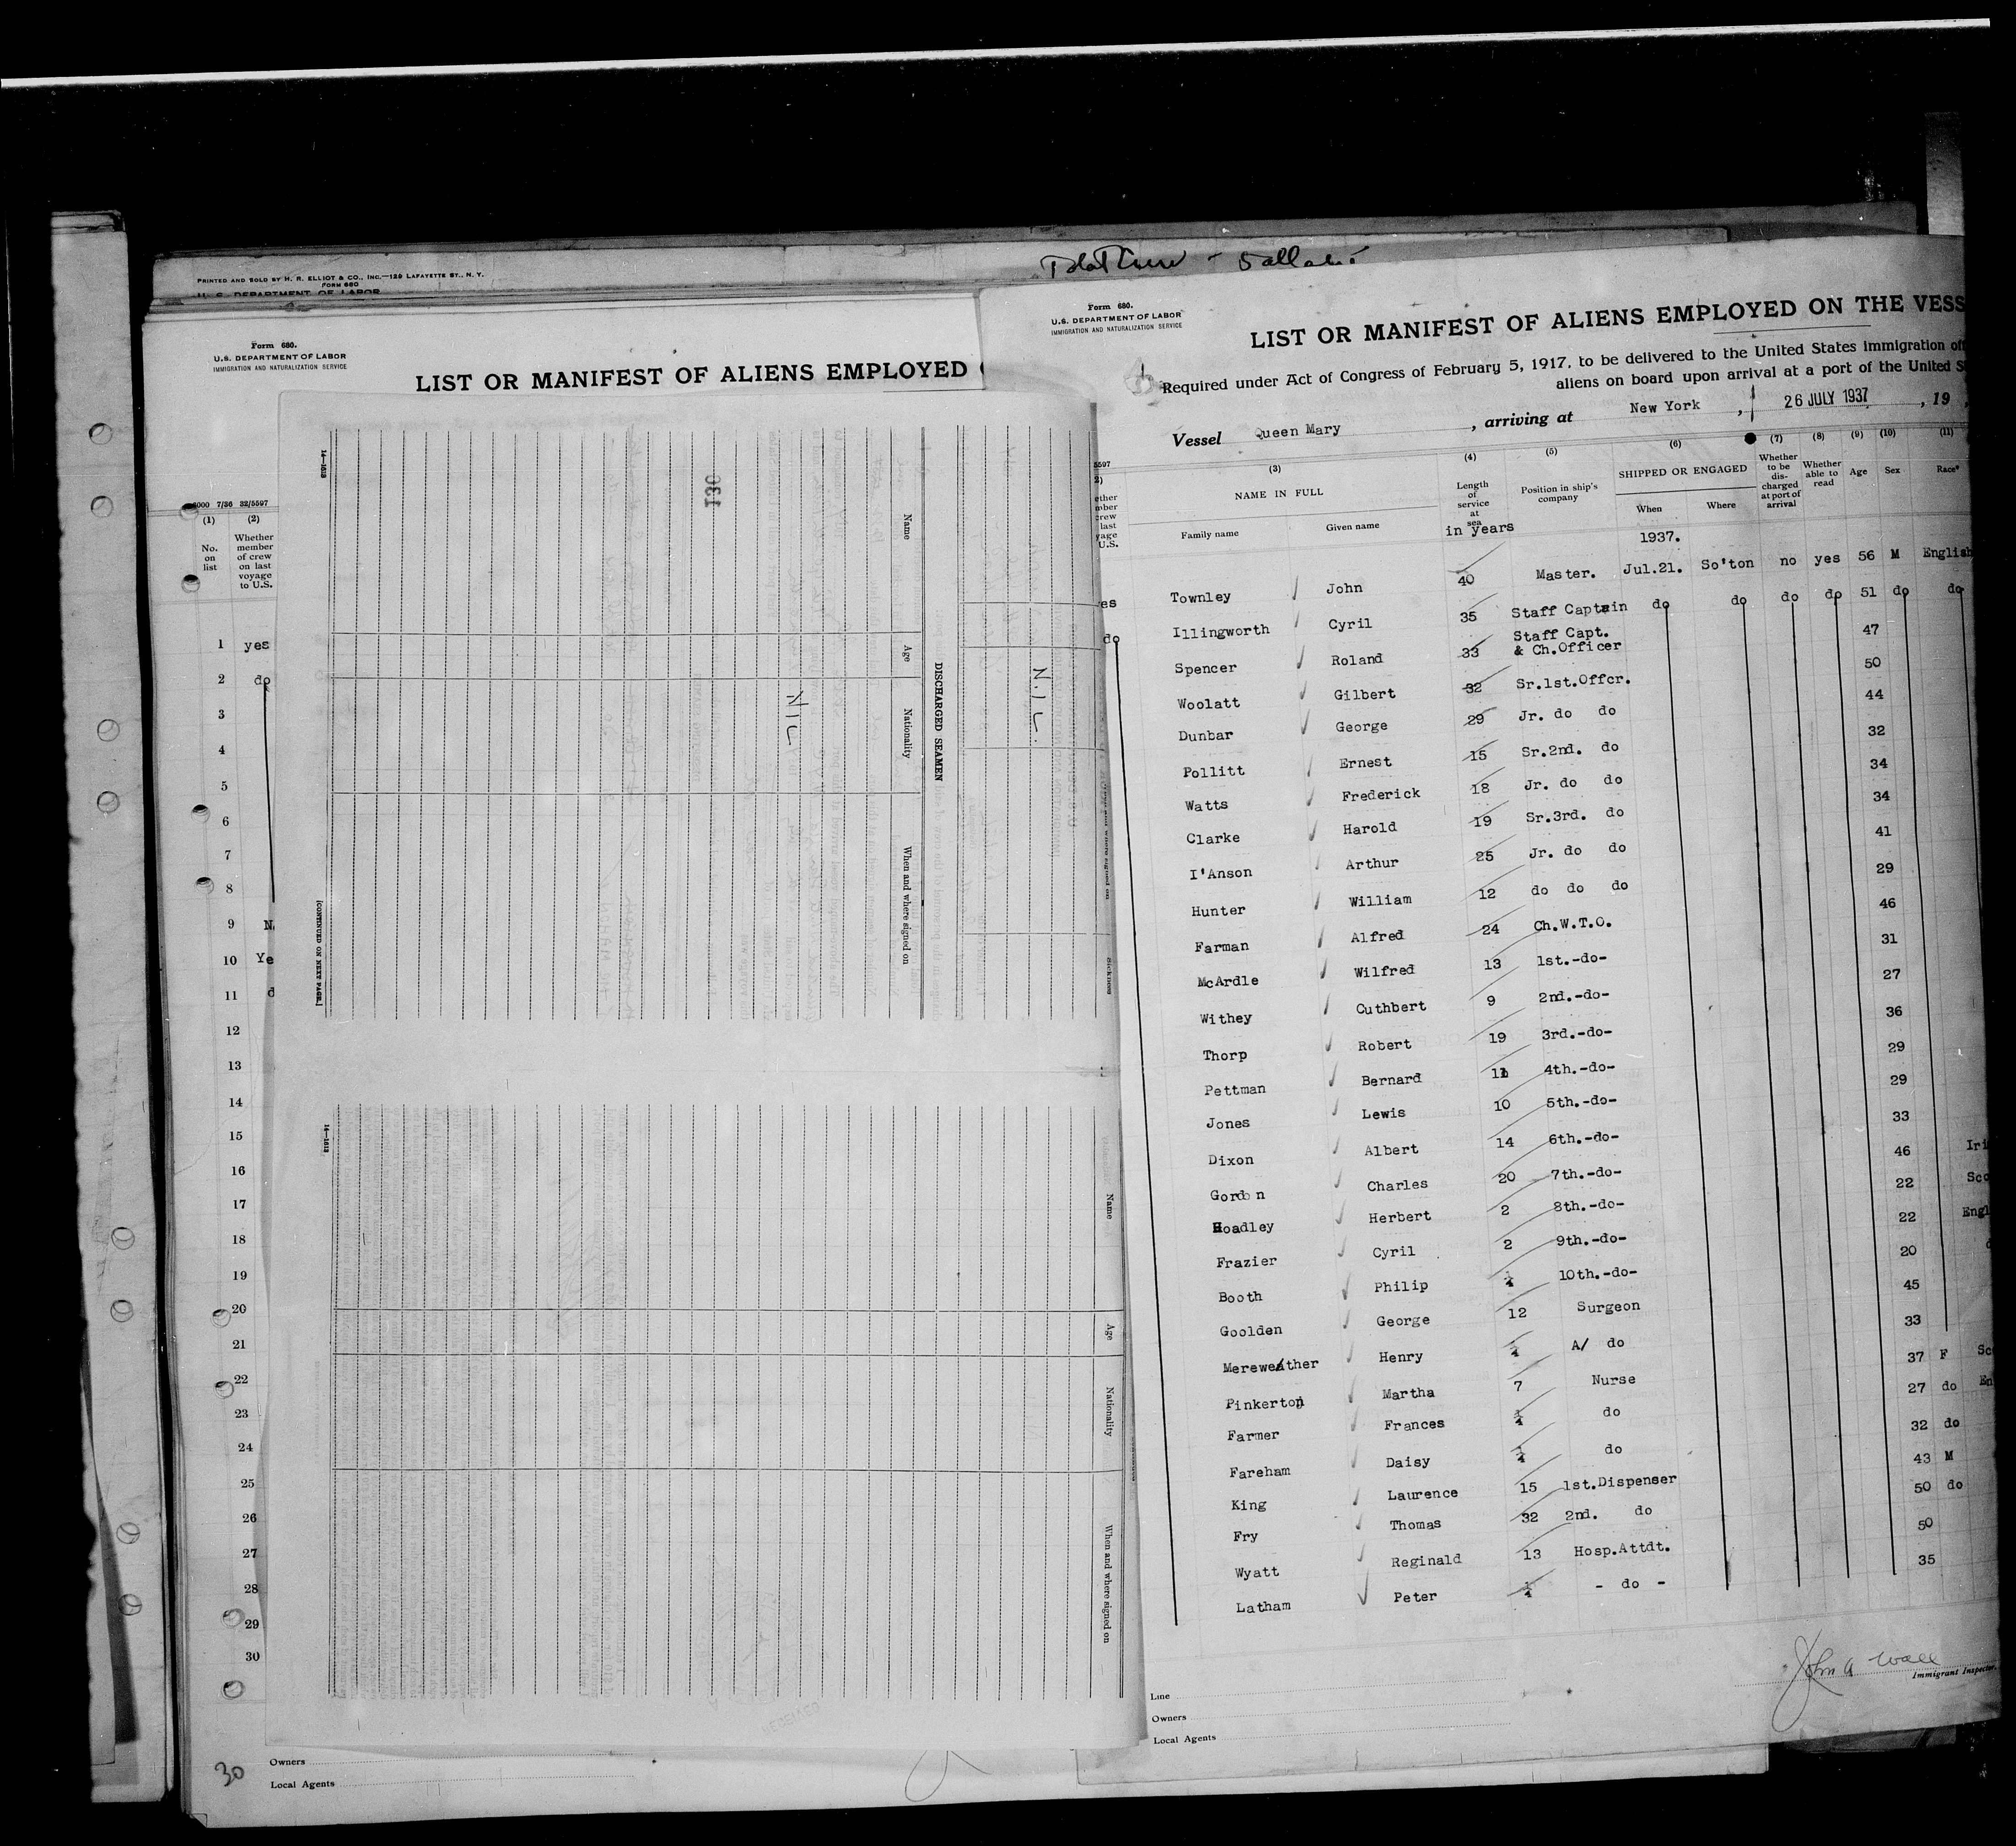 PRINTED AND SOLD BY H. R. ELLIOT & CO., INC.—129 LAFAYETTE ST., N. Y.
FORM 680
U. S. DEPARTMENT OF LABOR
Form 680.
U.S. DEPARTMENT OF LABOR
IMMIGRATION AND NATURALIZATION SERVICE
LIST OR MANIFEST OF ALIENS EMPLOYED
7/36 32/5597
(1) (2)
No. on list
Whether member of crew on last voyage to U.S.
1 yes
2 do
3
4
5
6
7
8
9 N
10 Ye
11 d
12
13
14
15
16
17
18
19
20
21
22
23
24
25
26
27
28
29
30
30
Owners
Local Agents
14—1513
130
Name
Age
Nationality
When and where signed on
DISCHARGED SEAMEN
NIL
N.I.L.
Sickness
[CONTINUED ON NEXT PAGE.]
14—1513
Name
Age
Nationality
When and where signed on
RECEIVED
Form 680.
U.S. DEPARTMENT OF LABOR
IMMIGRATION AND NATURALIZATION SERVICE
LIST OR MANIFEST OF ALIENS EMPLOYED ON THE VESS
Required under Act of Congress of February 5, 1917, to be delivered to the United States immigration of
aliens on board upon arrival at a port of the United S
Vessel Queen Mary, arriving at New York, 26 JULY 1937, 19
5597
(3) (4) (5) (6) (7) (8) (9) (10) (11)
NAME IN FULL
Family name Given name
Length of service at sea
in years
Position in ship's company
SHIPPED OR ENGAGED
When Where
1937.
Whether to be discharged at port of arrival
Whether able to read
Age
Sex
Race*
es Townley John 40 Master. Jul.21. So'ton no yes 56 M English
do Illingworth Cyril 35 Staff Captain do do do do 51 do do
Spencer Roland 33 Staff Capt. & Ch.Officer 47
Woolatt Gilbert 32 Sr.1st.Offcr. 50
Dunbar George 29 Jr. do do 44
Pollitt Ernest 15 Sr.2nd. do 32
Watts Frederick 18 Jr. do do 34
Clarke Harold 19 Sr.3rd. do 34
I'Anson Arthur 25 Jr. do do 41
Hunter William 12 do do do 29
Farman Alfred 24 Ch.W.T.O. 46
McArdle Wilfred 13 1st.-do- 31
Withey Cuthbert 9 2nd.-do- 27
Thorp Robert 19 3rd.-do- 36
Pettman Bernard 11 4th.-do- 29
Jones Lewis 10 5th.-do- 29
Dixon Albert 14 6th.-do- 33
Gordon Charles 20 7th.-do- 46 Iri
Hoadley Herbert 2 8th.-do- 22 Sco
Frazier Cyril 2 9th.-do- 22 Engl
Booth Philip ¼ 10th.-do- 20 d
Goolden George 12 Surgeon 45
Mereweather Henry ¼ A/ do 33
Pinkerton Martha 7 Nurse 37 F Sc
Farmer Frances ¼ do 27 do En
Fareham Daisy ¼ do 32 do
King Laurence 15 1st.Dispenser 43 M
Fry Thomas 32 2nd. do 50 do
Wyatt Reginald 13 Hosp.Attdt. 50
Latham Peter ¼ - do - 35
John A Wall
Immigrant Inspector.
Line
Owners
Local Agents